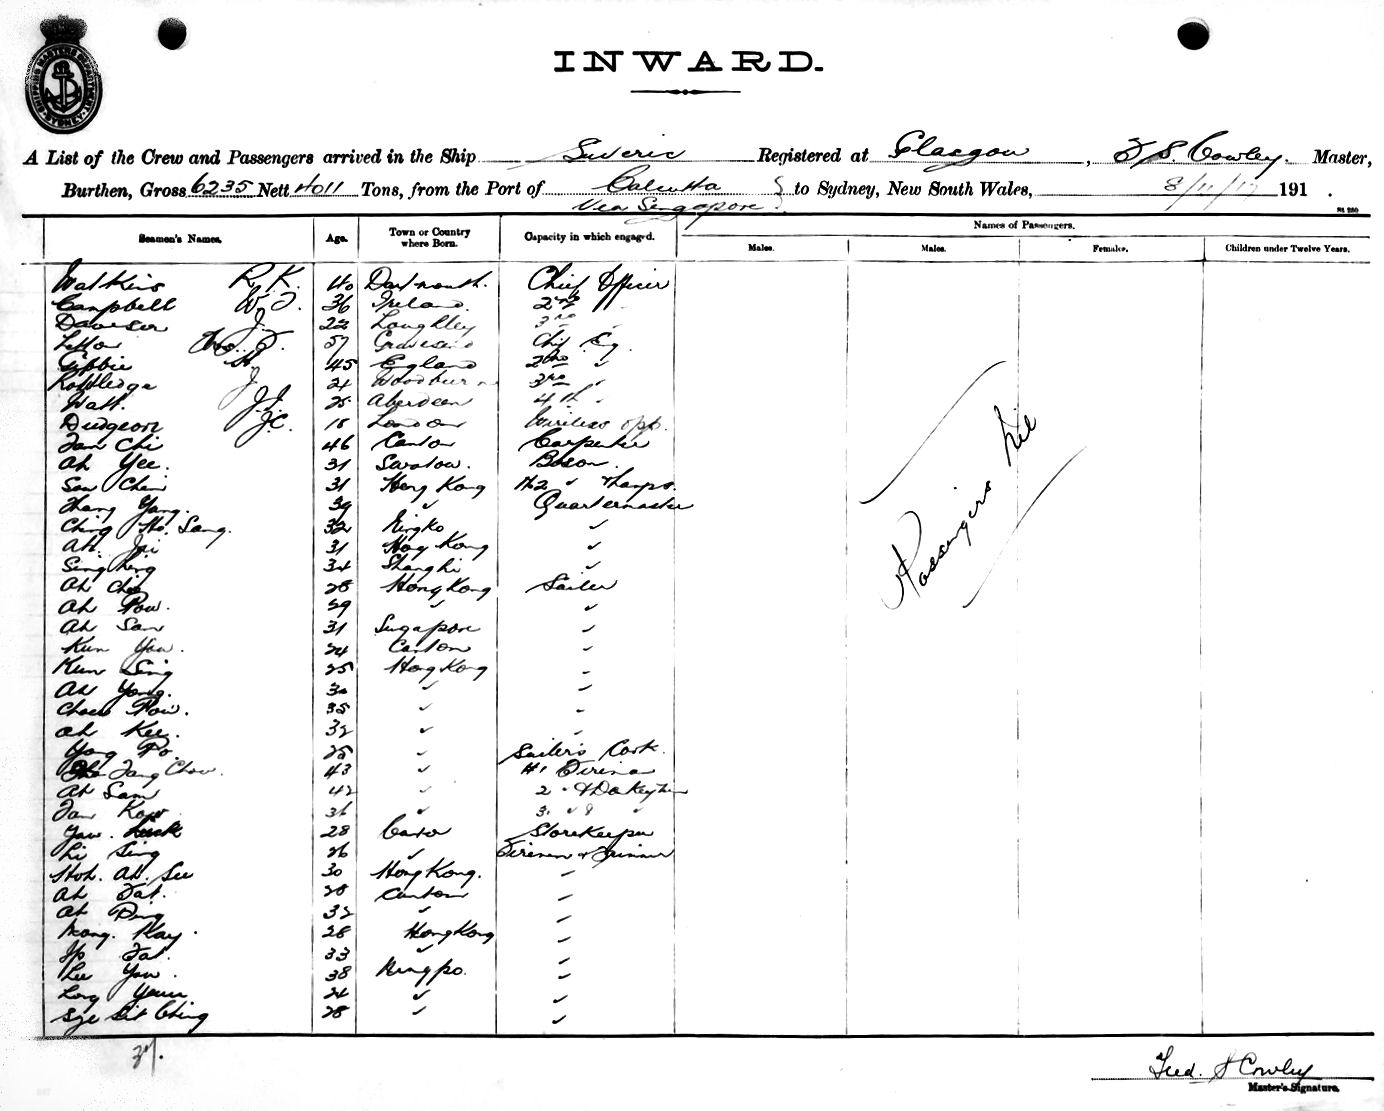 SHIPPING MASTER'S DEPARTMENT SYDNEY
INWARD.
A List of the Crew and Passengers arrived in the Ship Suveric Registered at Glasgow, F S. Cowley. Master,
Burthen, Gross 6235 Nett 4011 Tons, from the Port of Calcutta to Sydney, New South Wales, 8/11/17 191 .
Via Singapore
Seamen's Names. Age. Town or Country where Born. Capacity in which engaged. Names of Passengers.
Males. Males. Female. Children under Twelve Years.
Watkins R. K. 40 Dartmouth. Chief Officer
Campbell W. J. 36 Ireland. 2nd "
J. 22 Loughley 3rd
Thos. J. 57 Gravesend Chif Eng.
Gibbie 45 England 2nd "
Routledge J 24 Woodburn 3rd "
Watt. J.J. 25 Aberdeen 4th "
Dudgeon J.C. 18 London Wireless opp.
Tan Chi 46 Canton Carpenter
Ah Yee. 31 Bosun.
Sou Chen 31 Hong Kong No2 " & Lamps.
Zhang Yang. 39 " Quartermaster
Ching Ho. Sang. 32 Ningko "
Ah. Jai 31 Hong Kong "
Sing Leng 34 Shanghi "
Ah Chee 28 Hong Kong Sailer
Ah Pow. 29 " "
Ah San 31 Singapore "
Kun Yow. 24 Canton "
Kun Sing 25 Hong Kong "
Ah Yong. 30 " "
Chow Pow. 35 " "
Ah Kee. 32 " "
Yong Po. 25 " Sailer's Cook.
Tang Chow. 43 " No 1 Fireman
Ah Sam 42 " 2 " & Donkeyman
Tan Kow 36 " 3 " & "
Yaw. Luck 28 Canton Storekeeper
Li Sing 26 " Firemen & Trimmer
Hoh. Ah. See 30 Hong Kong. "
Ah Tat. 28 Canton "
Ah Ping 32 " "
Mong. Kay. 28 Hong Kong "
Ip Tat. 33 " "
Lee Yow. 38 Ningpo. "
Long Youn 24 " "
Sze Sit Ching 28 " "
Passengers Nil
37.
Fred. S Cowley
Master's Signature.